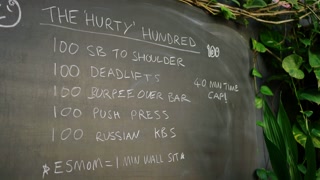 THE 'HURTY' HUNDRED 100
100 SB TO SHOULDER
100 DEADLIFTS
100 BURPEE OVER BAR
100 PUSH PRESS
100 RUSSIAN KBS
40 MIN TIME
CAP!
*ESMOM = 1 MIN WALL SIT*